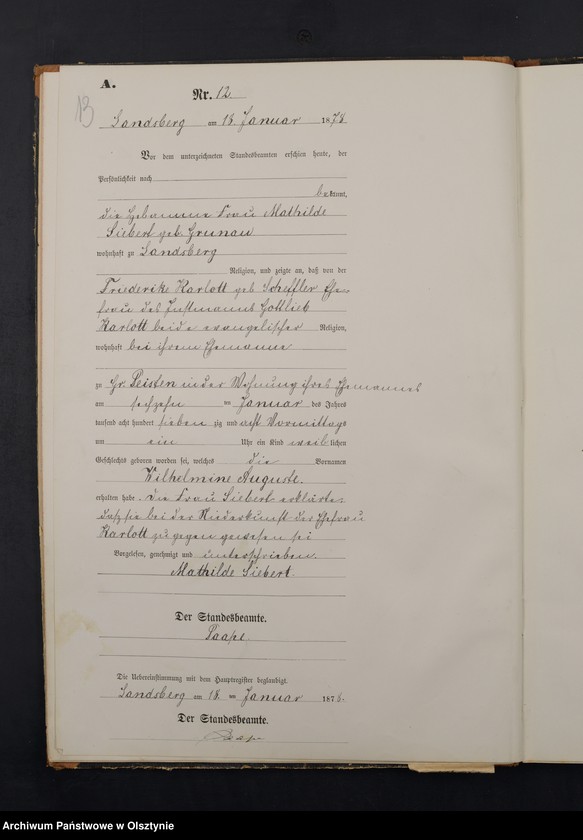 A.
13
Nr. 12
Landsberg am 18. Januar 1878
Vor dem unterzeichneten Standesbeamten erschien heute, der
Persönlichkeit nach
bekannt,
die Hebamme Frau Mathilde
Siebert geb. Grunau
wohnhaft zu Landsberg
Religion, und zeigte an, daß von der
Friederike Karlott geb Scheffler Ehe-
frau des Instmanns Gottlieb
Karlott beide evangelischer Religion,
wohnhaft bei ihrem Ehemanne
zu Gr. Peisten in der Wohnung ihres Ehemannes
am sechzehn ten Januar des Jahres
tausend acht hundert sieben zig und acht Vormittags
um ein Uhr ein Kind weib lichen
Geschlechts geboren worden sei, welches die Vornamen
Wilhelmine Auguste.
erhalten habe. Die Frau Siebert erklärte
daß sie bei der Niederkunft der Ehefrau
Karlott zugegen gewesen sei
Vorgelesen, genehmigt und unterschrieben.
Mathilde Siebert.
Der Standesbeamte.
Paape.
Die Uebereinstimmung mit dem Hauptregister beglaubigt.
Landsberg am 18. ten Januar 1878.
Der Standesbeamte.
Paape
Archiwum Państwowe w Olsztynie